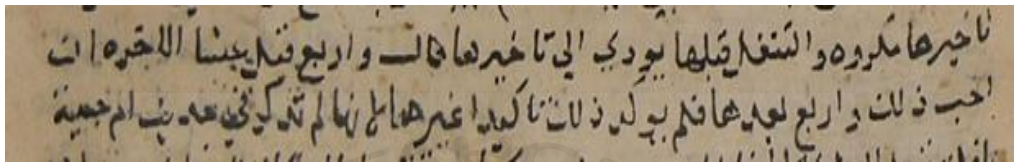 تاخيرها مكروه والتنفل قبلها يودي الي تاخيرها قال واربع قبل عشا الاخره ان
احب ذلك واربع بعدها فلم يوكد ذلك تاكيد اغيرهما لانها لم تذكر في حديث ام حبيبة